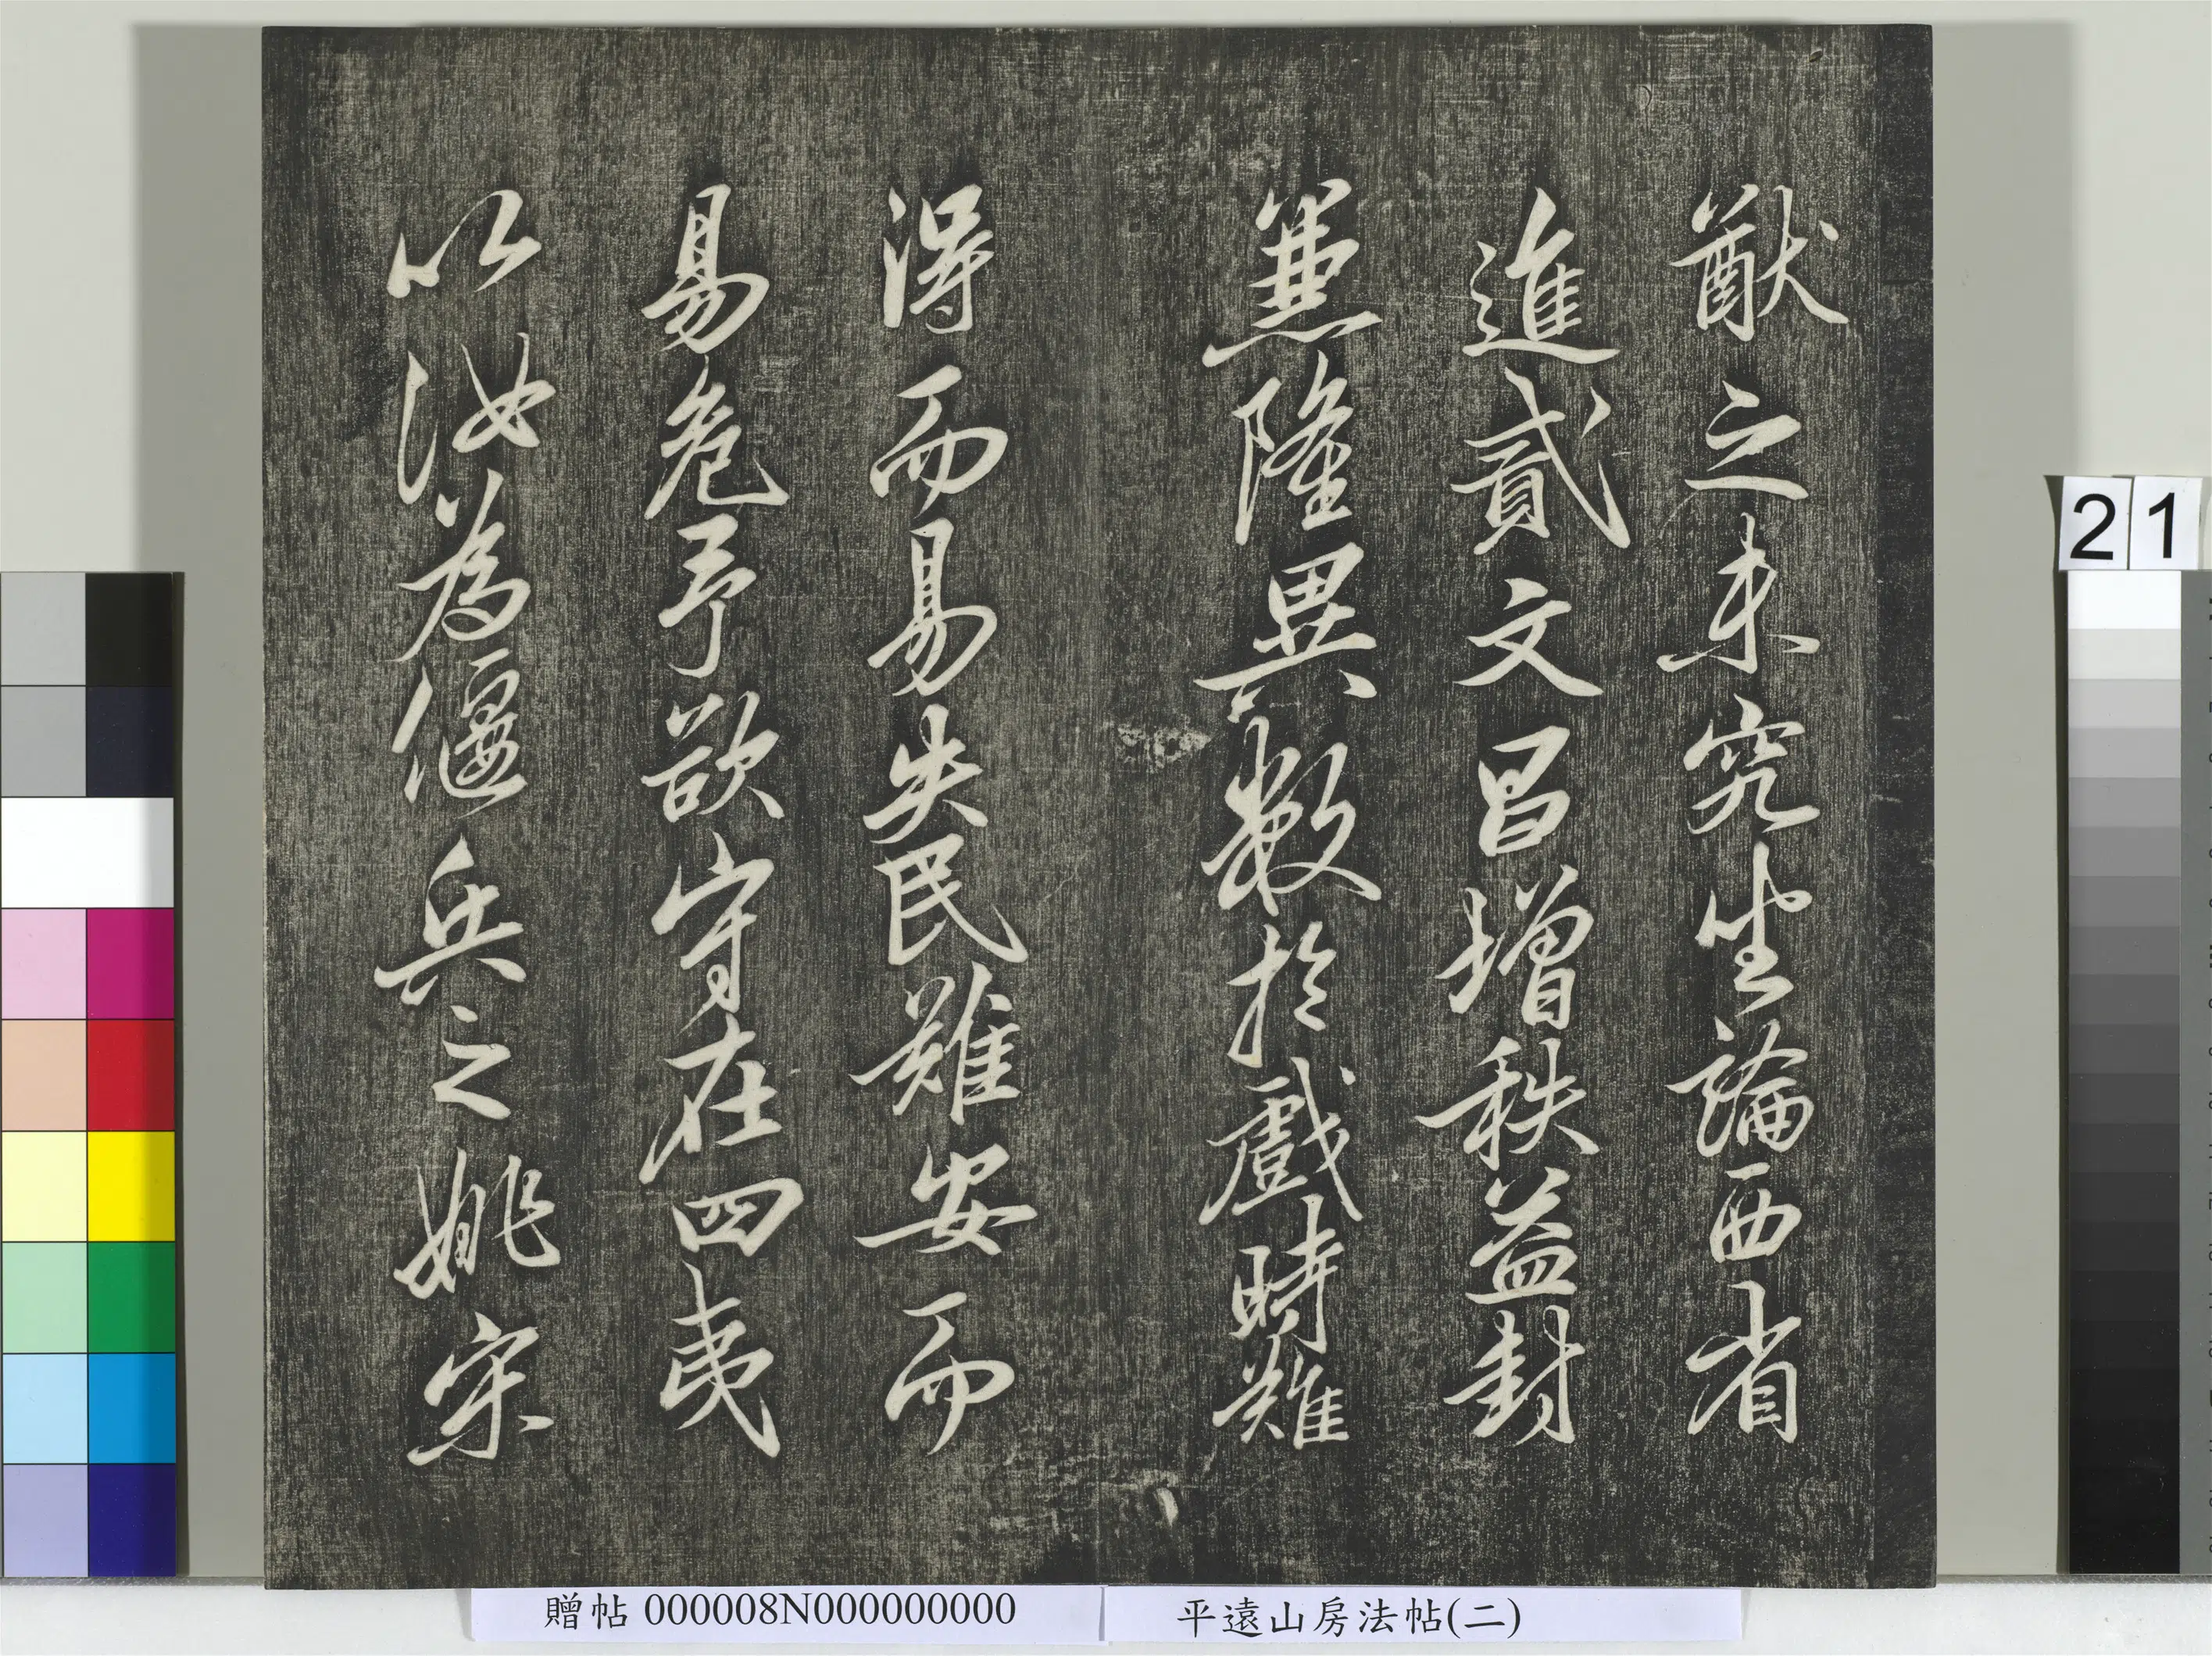 猷之未究坐論西省
進貳文昌增秩益封
兼隆異數於戲時難
得而易失民難安而
易危予欲守在四夷
以汝為偃兵之姚宋
21
贈帖 000008N000000000
平遠山房法帖(二)